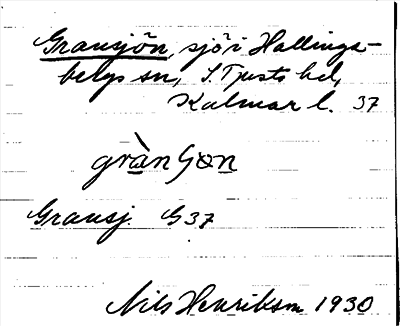 Gransjön, sjö i Hallings-
bergs sn, S. Tjusts hd,
Kalmar l. 37
gràn ʃɷn
Gransj. G 37
Nils Henriksson 1930